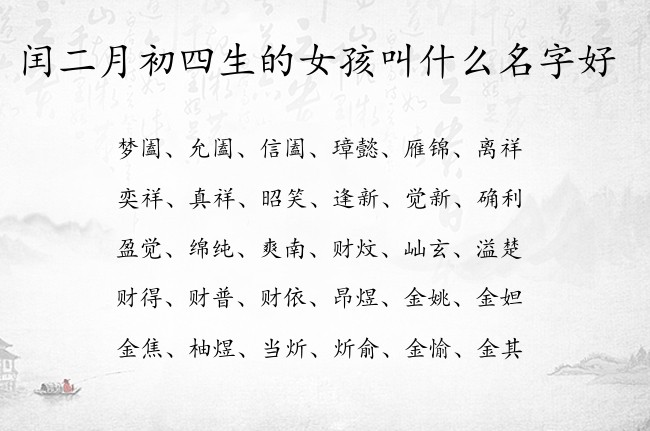 闰二月初四生的女孩叫什么名字好
梦阖、允阖、信阖、璋懿、雁锦、离祥
奕祥、真祥、昭笑、逢新、觉新、确利
盈觉、绵纯、爽南、财炆、屾玄、溢楚
财得、财普、财依、昂煜、金姚、金妲
金焦、柚煜、当炘、炘俞、金愉、金其